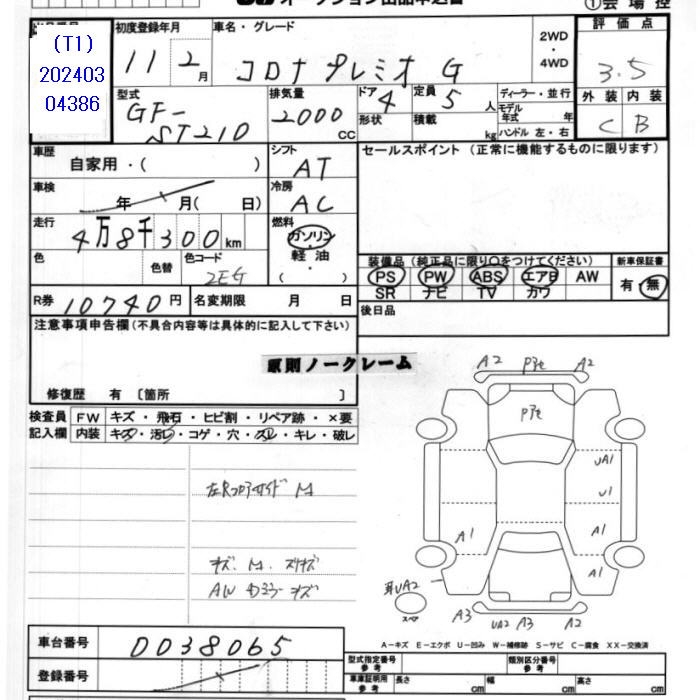 オークション出品申込書
①会場控
(T1)
202403
04386
初度登録年月
11 2月
車名・グレード
コロナプレミオ G
2WD
・
4WD
評価点
3.5
外装 内装
C B
型式
GF-
ST210
排気量
2000
CC
ドア 4
形状
定員 5 人
積載 kg
ディーラー・並行
モデル
年式 年
ハンドル 左・右
車歴
自家用・( )
シフト
AT
セールスポイント (正常に機能するものに限ります)
車検
年 月( 日)
冷房
AC
走行
4万8千300km
燃料
ガソリン
軽油
・
( )
色
色替
色コード
2EG
装備品 (純正品に限り○をつけてください)
PS PW ABS エアB AW
SR ナビ TV カワ
新車保証書
有・無
R券 10740円
名変期限 月 日
後日品
注意事項申告欄(不具合内容等は具体的に記入して下さい)
原則ノークレーム
修復歴 有 [箇所 ]
検査員
記入欄
FW キズ・飛石・ヒビ割・リペア跡・×要
内装 キズ・汚レ・コゲ・穴・スレ・キレ・破レ
キズ. M. スリキズ
A2 Pチヒ A2
Pチヒ
UA1
U1
A1
A1
A1
UA2
スペア
A3 UA2 A3 A2
A-キズ E-エクボ U-凹み W-補修跡 S-サビ C-腐食 XX-交換済
車台番号 0038065
登録番号
型式指定番号
参考
類別区分番号
参考
車庫証明用
参考
長さ cm 幅 cm 高さ cm